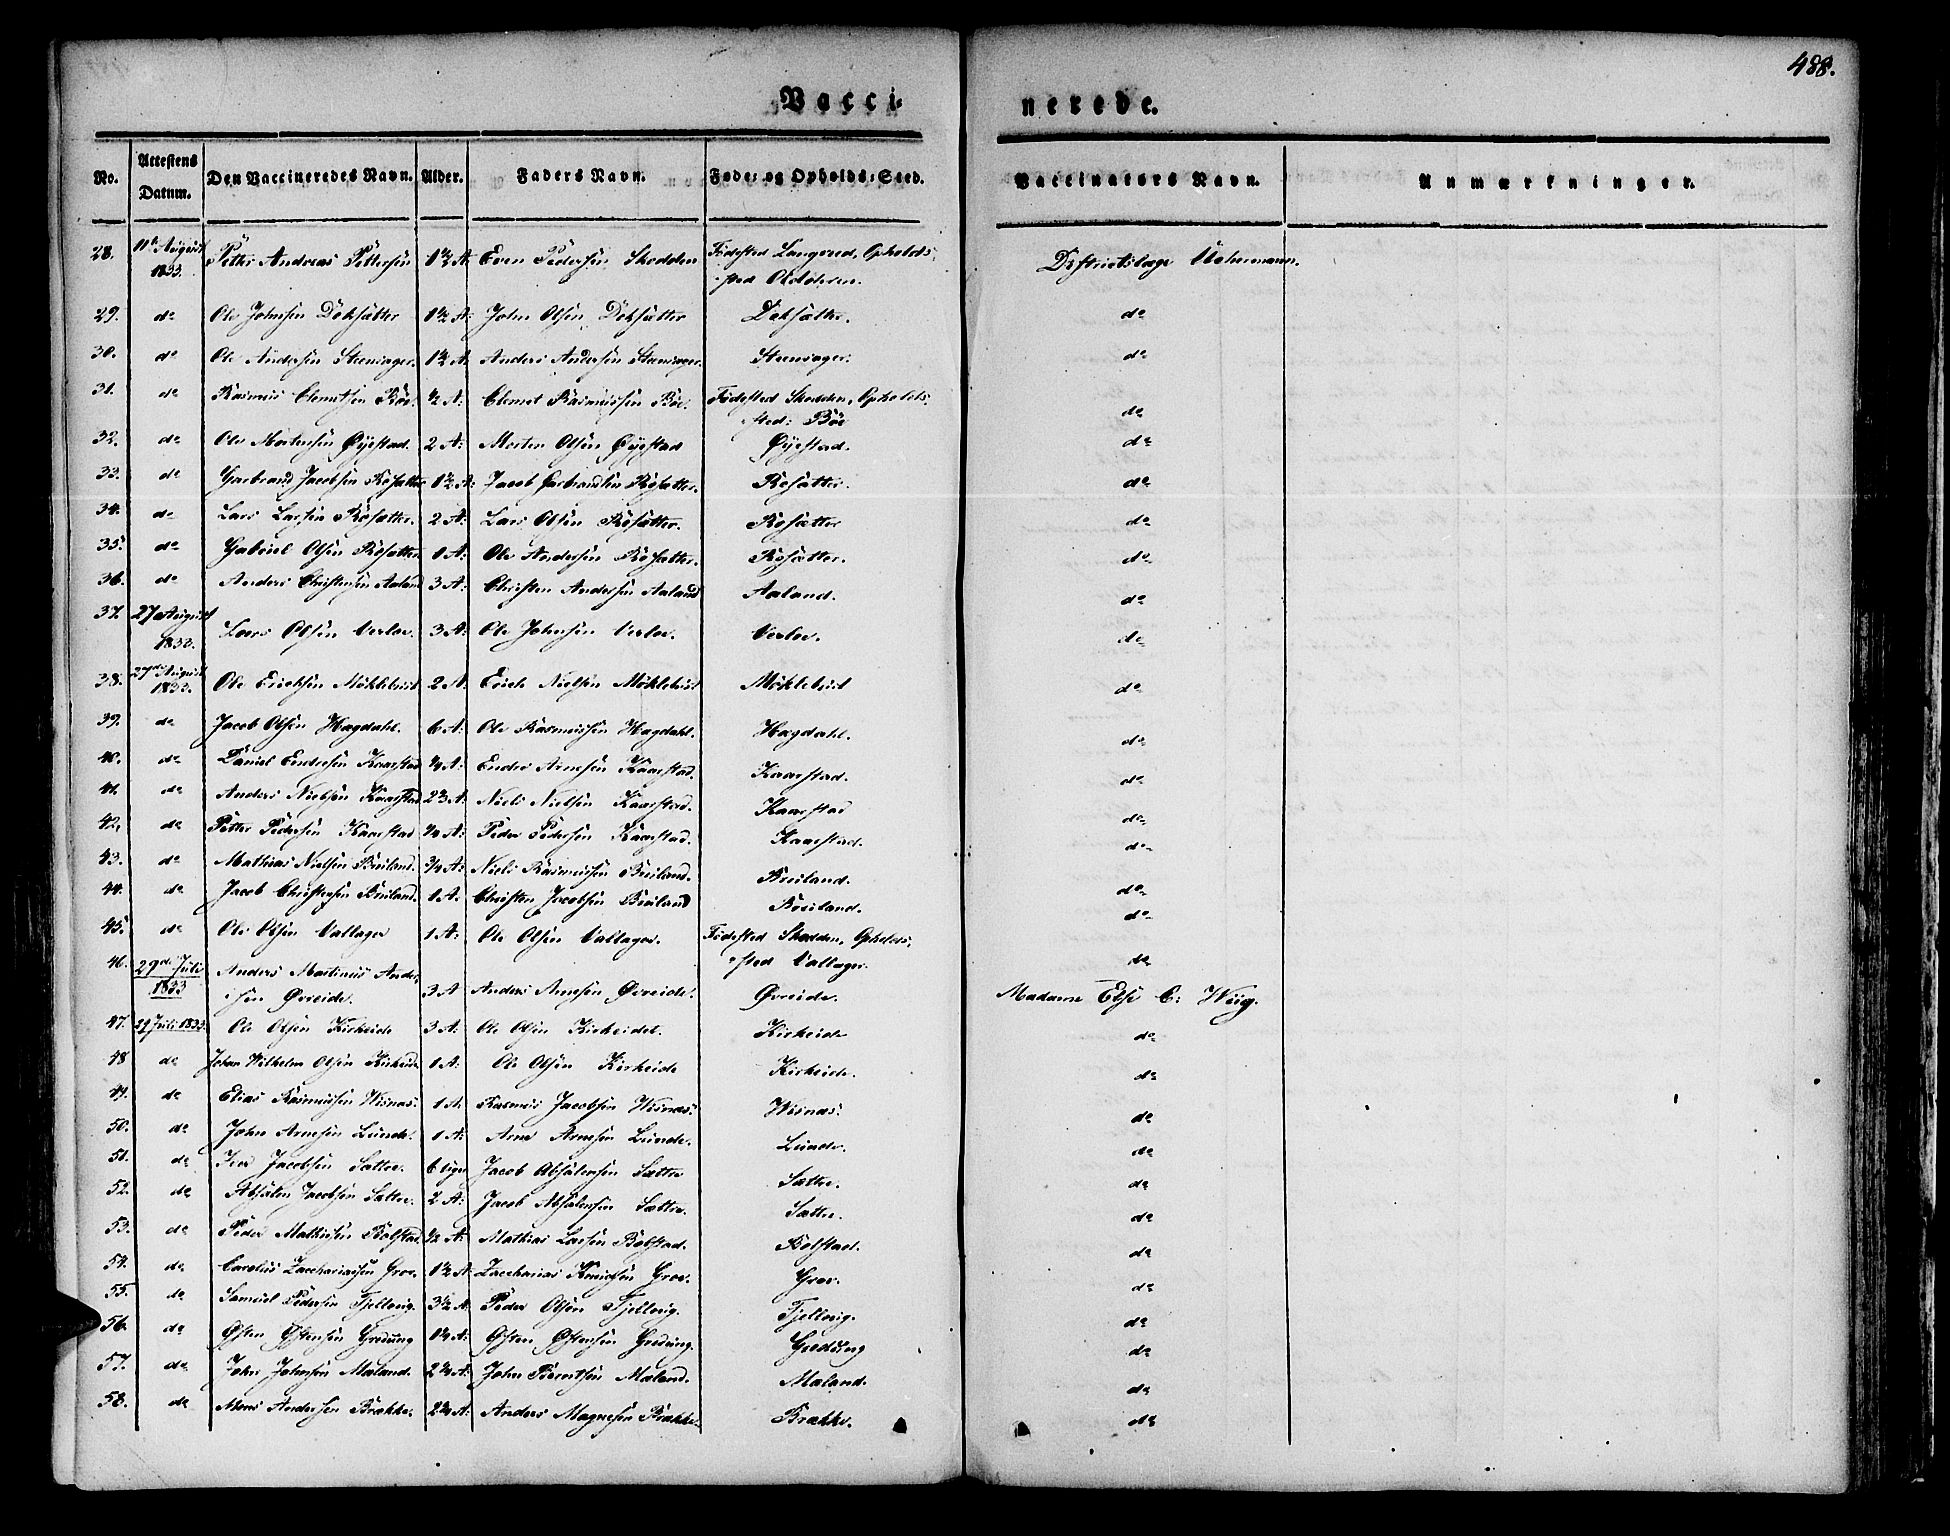 488.
Vacci- nerede.
No. Attestens Datum. Den Vaccineredes Navn. Alder. Faders Navn. Føde- og Opholds-Sted. Vaccinators Navn. Anmærkninger.
28. 11te August 1833. Petter Andreas Pettersen 1½ A: Even Pedersen Skodden Fødested Langered, Opholds-
sted Districtslæge
29. do Ole Johnsen Döksætter 1½ A: John Olsen Döksætter Döksætter. do
30. do Ole Andersen Steensager. 1½ A: Anders Andersen Steensager. Steensager: do
31. do Rasmus Clemetsen Böe. ½ A: Clemet Rasmussen Böe. Fødested Skodden, Opholds-
sted: Böe do
32. do Ole Mortensen Øyestad. 2 A: Morten Olsen Øyestad Øyestad. do
33. do Garbrand Jacobsen Rösætter 1½ A: Jacob Garbrandsen Rösætter. Rösætter. do
34. do Lars Larsen Rösætter. 2 A: Lars Olsen Rösætter. Rösætter do
35. do Gabriel Olsen Rösætter 1 A: Ole Andersen Rösætter. Rösætter. do
36. do Anders Christensen Aaland 3 A: Christen Andersen Aaland Aaland. do
37. 27 August 1833. Lars Olsen Verloe. 3 A: Ole Johnsen Verloe. Verloe. do
38. 27de August 1833. Ole Ericksen Möklebust 2 A: Erich Nielsen Möklebust Möklebust do
39. do Jacob Olsen Hagdahl. 6 A: Ole Rasmussen Hagdahl. Hagdahl. do
40. do Daniel Endresen Kaarstad ¼ A: Endre Arnesen Kaarstad. Kaarstad. do
41. do Anders Nielsen Kaarstad 2¾ A: Niels Nielsen Kaarstad. Kaarstad do
42. do Petter Pedersen Kaarstad ¼ A: Peder Pedersen Kaarstad. Kaarstad. do
43. do Mathias Nielsen Breiland. ¾ A: Niels Rasmussen Breiland. Breiland. do
44. do Jacob Christensen Breiland. 1 A: Christen Jacobsen Breiland Breiland. do
45. do Ole Olsen Vallager 1 A: Ole Olsen Vallager. Fødested Skodden, Opholds-
sted Vallager. do
46. 29de Juli 1833 Anders Martinus Ander-
sen Øvreide. 3 A Anders Arnesen Øvreide. Øvreide. Madame Else C: Wiig.
47. 29 Juli 1833. Ole Olsen Kirkeide 3 A: Ole Olsen Kirkeidet. Kirkeide do
48 do Johan Wilhelm Olsen Kirkeide 1 A: Ole Olsen Kirkeide Kirkeide. do
49. do Elias Rasmussen Wisnæs: 1 A: Rasmus Jacobsen Wisnæs: Wisnæs: do
50. do John Arnesen Lunde. 1 A: Arne Arnesen Lunde. Lunde. do
51. do Iver Jacobsen Sætter. 6 Uger Jacob Absalonsen Sætter Sætter. do
52. do Absalon Jacobsen Sætter. 2 A: Jacob Absalonsen Sætter. Sætter. do
53. do Peder Mathiesen Bolstad. ½ A: Mathias Larsen Bolstad. Bolstad. do
54. do Carolus Zacchariassen Grov. 1½ A Zaccharias Knudsen Grov. Grov. do
55. do Samuel Pedersen Tjellvig. 3½ A: Peder Olsen Tjellvig. Tjellvig. do
56. do Østen Østensen Gredung 1¼ A: Østen Østensen Gredung. Gredung do
57. do John Johnsen Maland. 2¼ A: John Berntsen Maland. Maland. do
58. do Mons Andersen Brække. 2¼ A: Anders Magnesen Brække. Brække. do